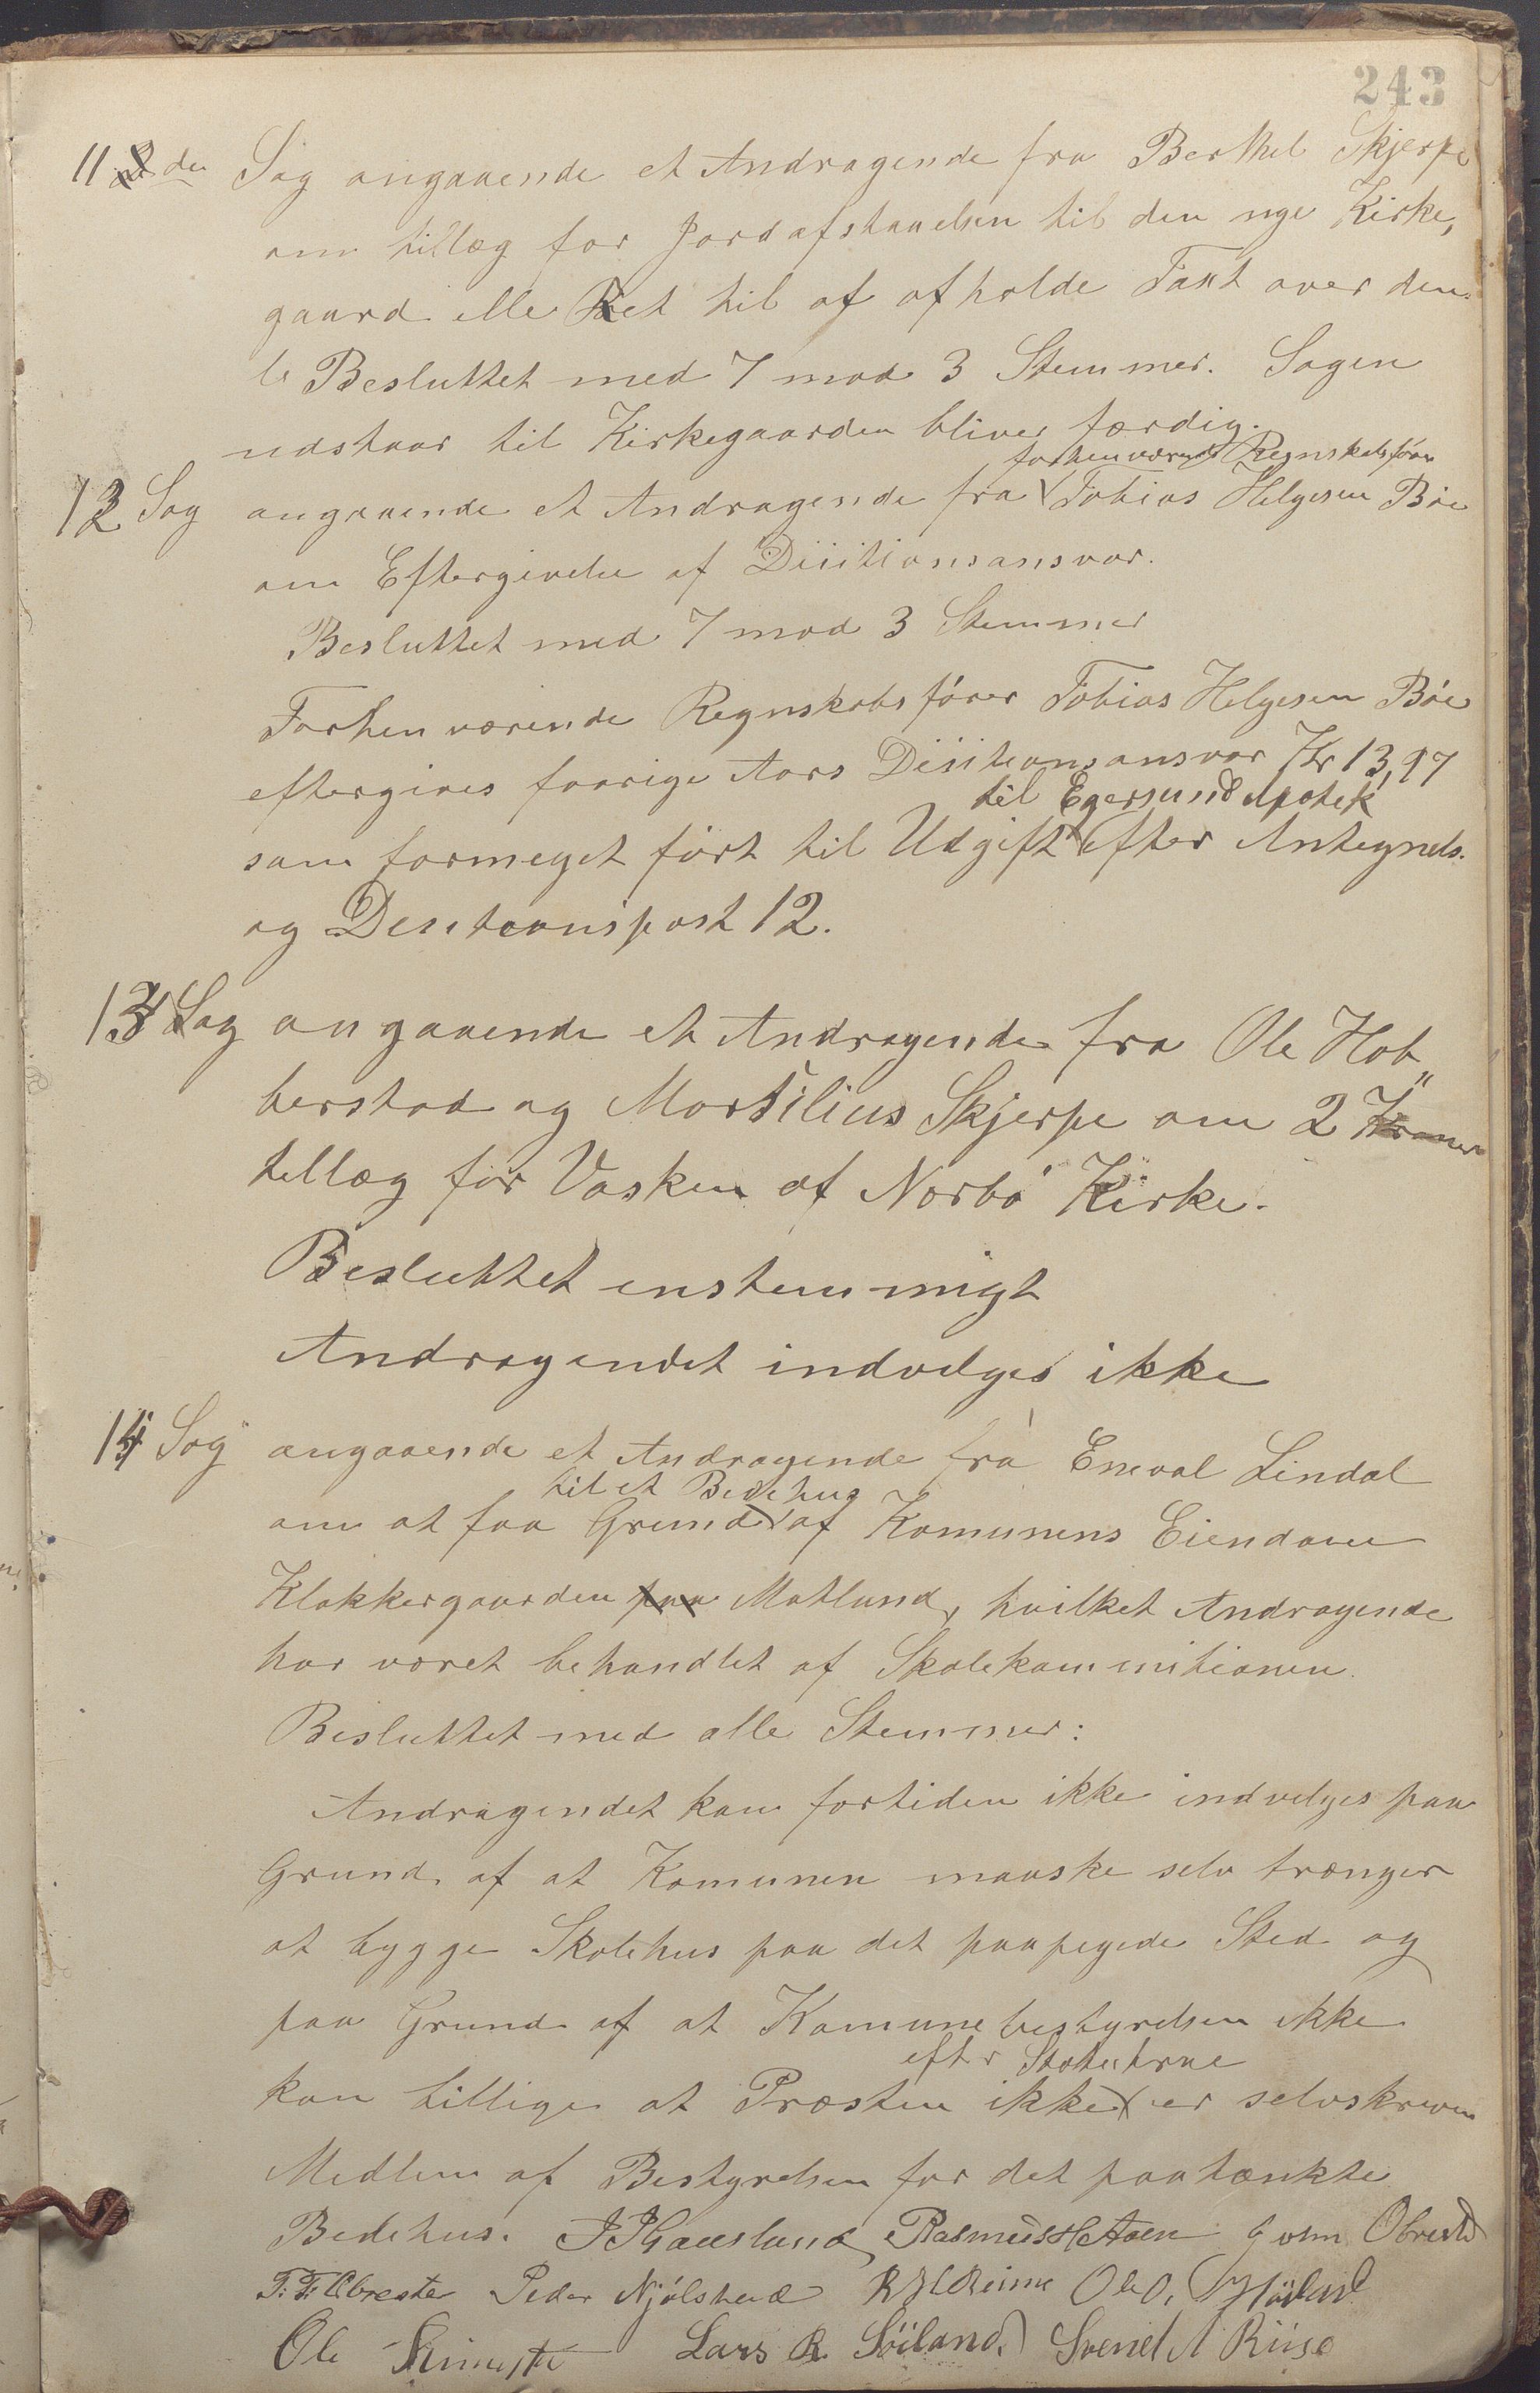 243
11 den Sag angaaende et Andragende fra Berthel Skjerpe
om tillæg for Jordafstaaelsen til den nye Kirke,
gaard elle Ret til af afholde Taxt over den.
Besluttet med 7 mod 3 Stemmer. Sagen
udstaar til Kirkegaarden bliver færdig.
forhenværende Regnskabsfører
12 Sag angaaende et Andragende fra Tobias Helgesen Bøe
om Eftergivelse af Diisitionsansvar.
Besluttet med 7 mod 3 Stemmer
Forhenværende Regnskabsfører Tobias Helgesen Bøe
eftergives forrige Aars Diisitionsansvar Kr 13,97
til Egersund Apotek
som formeget ført til Udgift efter Antegnels.
og Desitionspost 12.
13 Sag angaaende et Andragende fra Ole Hob„
berstad og Mortilius Skjerpe om 2 Kroner
tillæg for Vasken af Nærbø Kirke.
Besluttet enstemmigt
Andragendet indvelges ikke
14 Sag angaaende et Andragende fra Eneval Lindal
til et Bedehus
om at faa Grund af Komunens Eiendom
Klokkergaarden paa Motland, hvilket Andragende
har været behandlet af Skolekommitionen.
Besluttet med alle Stemmer:
Andragendet kan fortiden ikke indvelges paa
Grund af at Komunen maaske selv trænger
at bygge Skolehus paa det paapegede Sted og
paa Grund af at Komunebestyrelsen ikke
efter Statuterne
kan tillige at Præsten ikke er selvskreven
Medlem af Bestyrelsen for det paatænkte
Bedehus. Gausland Rasmus H Aaen Obrestd
T. T. Obrestad Peder Njølstad Reime Ole O. Høiland
Ole Lars R. Søiland. Svend A Riise